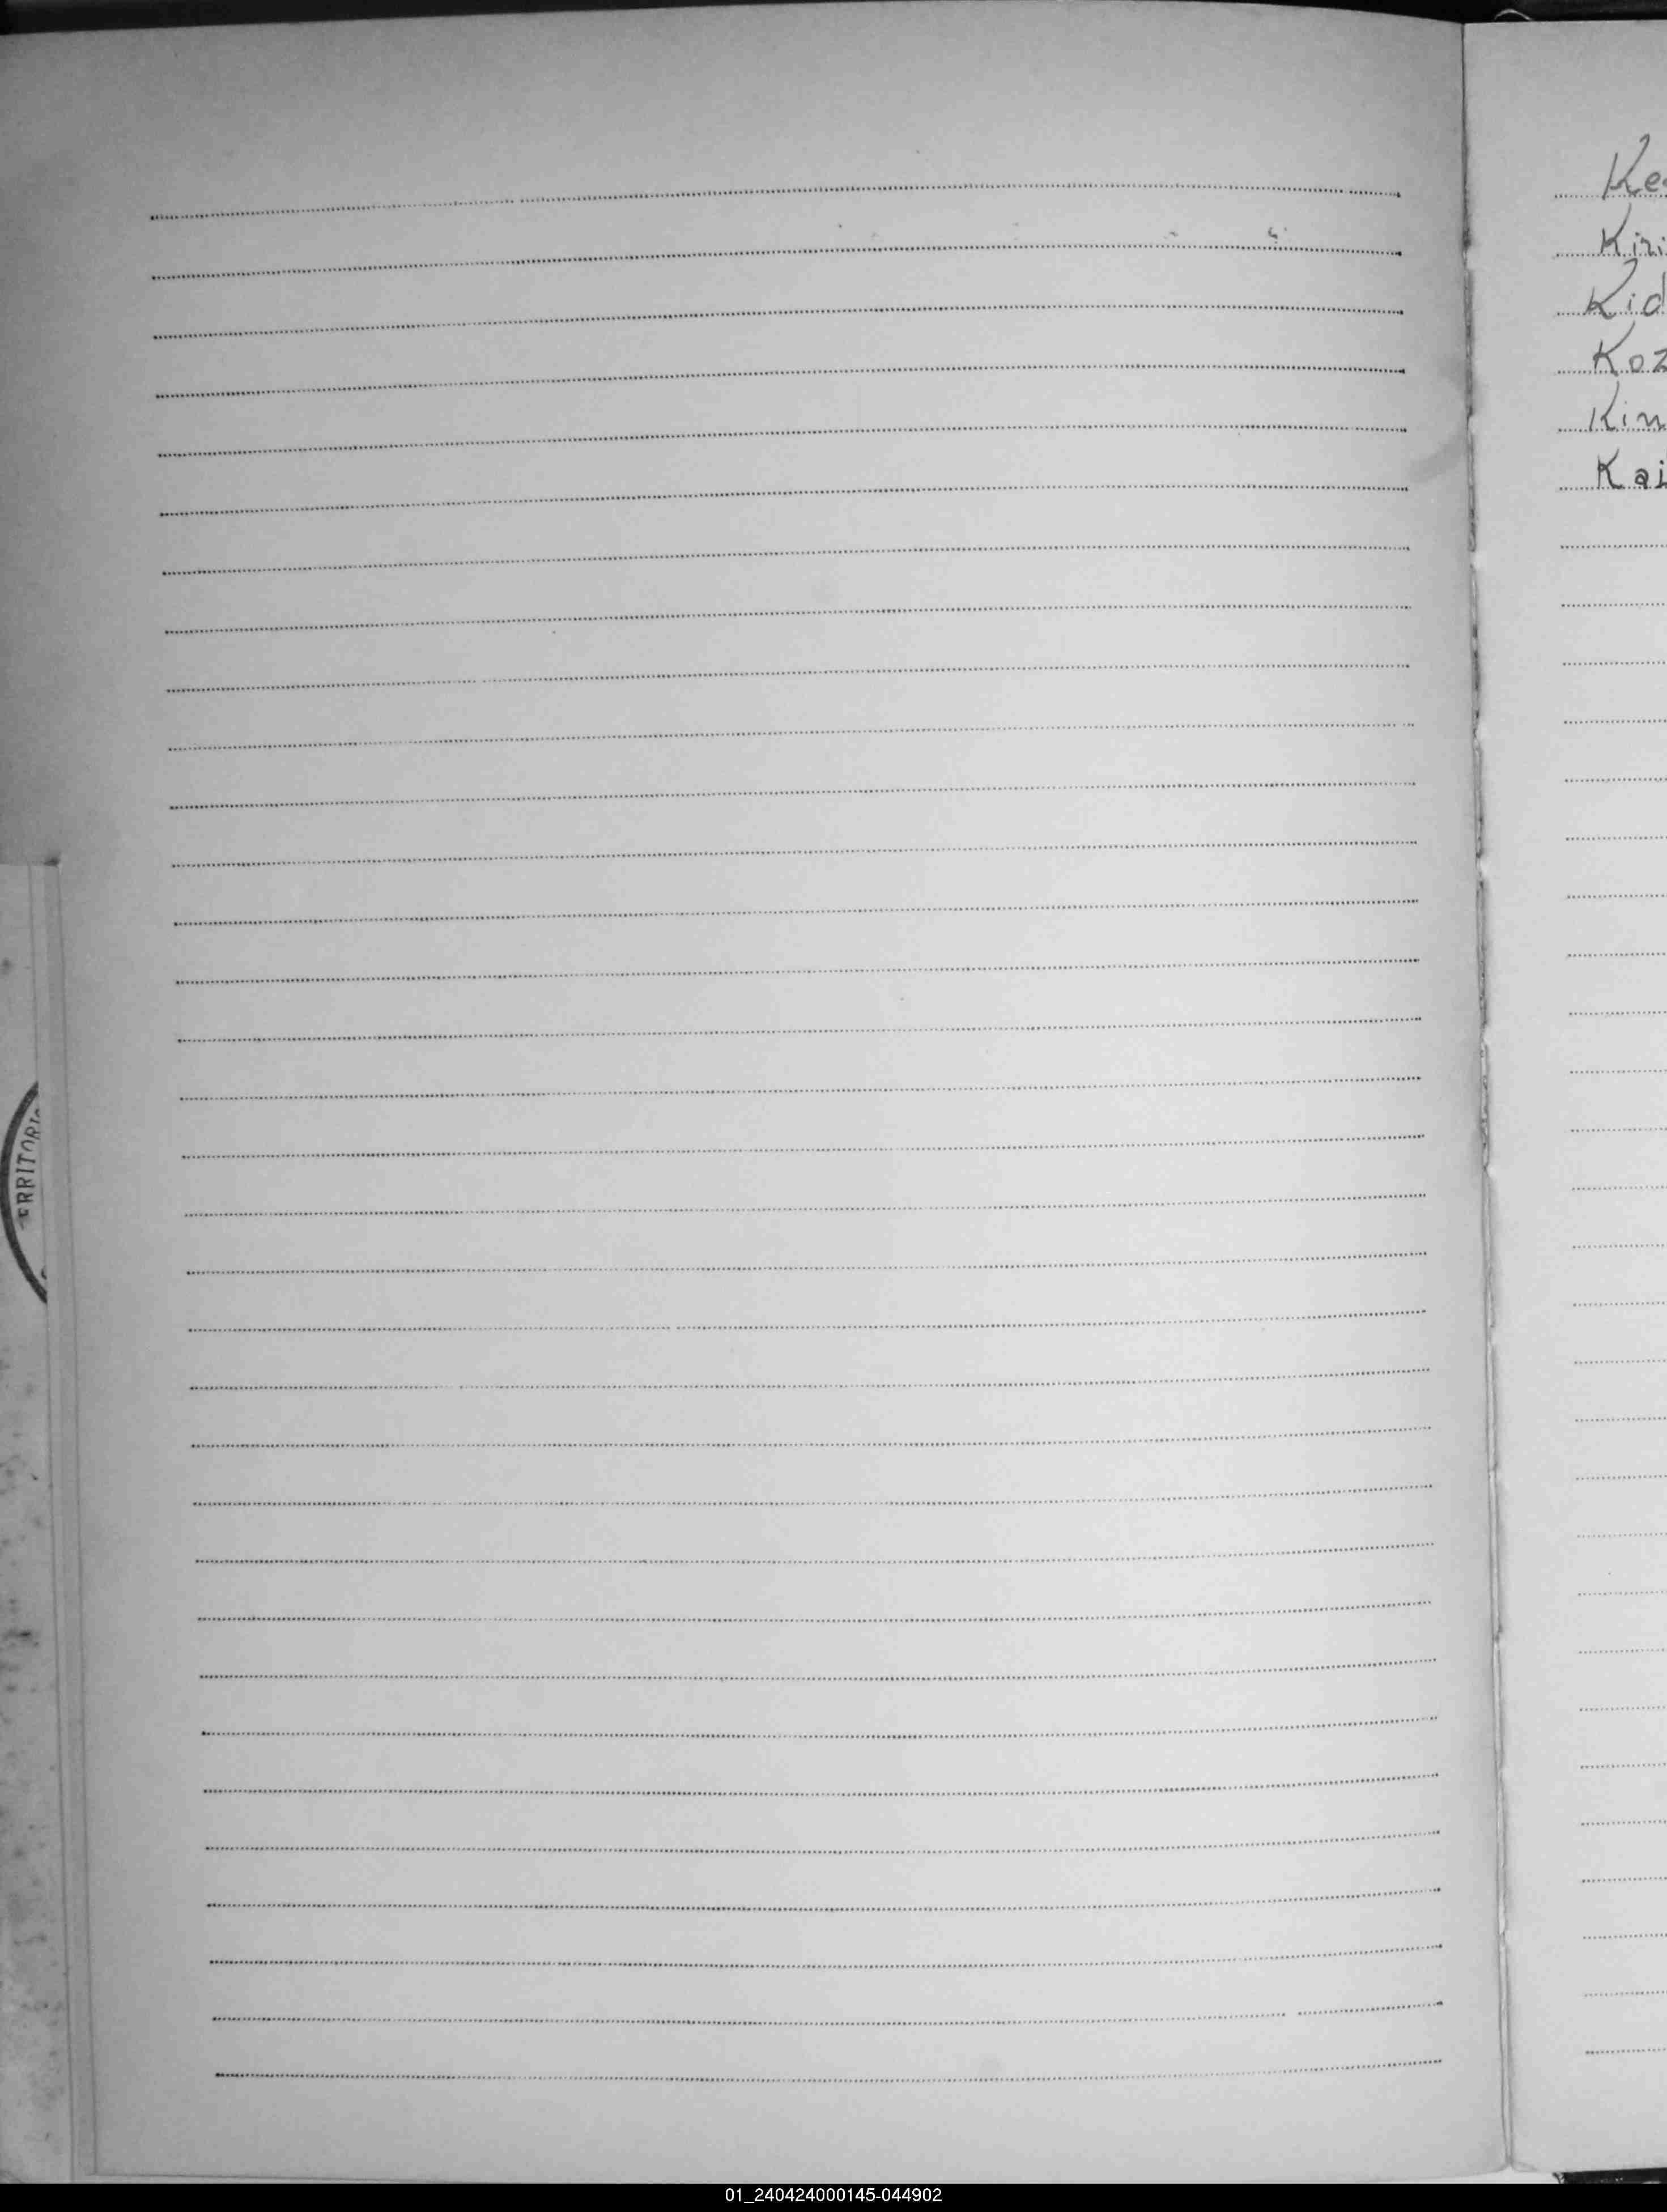 Ke
Kiri
Kid
Koz
Kin
Kai
ERRITORI
01_240424000145-044902